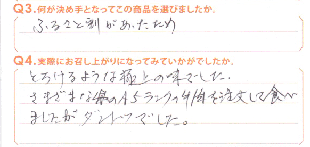 Q3.何が決め手となってこの商品を選びましたか。
ふるさと割があったため
Q4.実際にお召し上がりになってみていかがでしたか。
とろけるような極上の味でした。
さまざまな県のA5ランクの牛肉を注文して食べ
ましたがダントツでした。